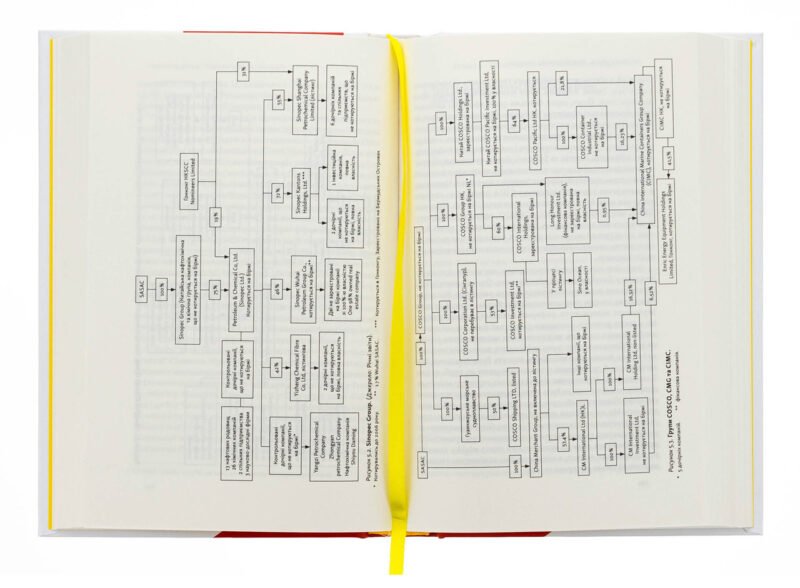 SASAC
100%
Sinopec Group (Китайська нафтохімічна
та хімічна група, компанія,
що не котирується на біржі)
75%
19%
Гонконг HKSCC
Nominees Limited
Petroleum & Chemical Co, Ltd.
(Sinopec Ltd.)
Котирується на біржі
31%
17 нафтових родовищ
26 хімічних компаній
2 спільних підприємства
3 науково-дослідні фірми
Контрольовані
дочірні компанії,
що не котируються
на біржі
Контрольовані
дочірні компанії,
що не котируються
на біржі*
42%
46%
72%
55%
Yizheng Chemical Fibre
Co. Ltd, лістингова
Sinopec Wuhan
Petroleum Group Co.,
котирується на біржі**
Sinopec Kantons
Holdings, Ltd.***
Sinopec Shanghai
Petrochemical Company
Limited (лістинг)
Yangzi Petrochemical
Company
Zhongyan
petrochemical Company
Нафтохімічна компанія
Shiyou Daming
2 дочірні компанії,
що не котируються на
біржі, повна власність
Дві не зареєстровані
на біржі компанії
зі 100% ю власністю
One 98% owned real
estate company
2 дочірні
компанії, що
не котируються
на біржі, повна
власність
1 інвестиційна
компанія,
повна
власність
6 дочірніх компаній
та спільних
підприємств, що
не котируються на біржі
Рисунок 5.2. Sinopec Group. (Джерело. Річні звіти).
* Котирувались до 2006 року. ** 17% Wuhan SASAC. *** Котирується в Гонконгу, Зареєстровано на Бермудських Островах.
SASAC
100%
COSCO Group, не котирується на біржі
100%
100%
100%
100%
Гуанчжоурське морське
судноплавство
COSCO Corporation Ltd. (Сингапур),
не перебуває в лістингу
COSCO Group HK,
не котирується на біржі NL*
Китай COSCO Holdings Ltd.,
зареєстрована на біржі
50%
53%
60%
COSCO Shipping LTD, listed
COSCO Investment Ltd,
котирується на біржі
COSCO International
Holdings,
зареєстрована на біржі
Китай COSCO Pacific Investment Ltd,
не котирується на біржі, 100% у власності
64%
COSCO Pacific Ltd HK, котирується на біржі
100%
China Merchant Group; не включена до лістингу
У процесі
лістингу
Sino Ocean.
у власності
Long Honour
Investment Ltd.
(фінансова компанія),
не зареєстрована
на біржі, повна
власність
100%
21,8%
COSCO Container
Industrial Ltd.,
не котирується
на біржі
57,4%
CM International Ltd (НК)),
котирується на біржі
Інші компанії, що
котируються на біржі
0,95%
16,23%
100%
100%
16,32%
CM International
Investment Ltd.
не котирується на біржі
CM International
Holding Ltd, non listed
China International Marine Containers Group Company
(CIMC), котирується на біржі
6,52%
41,5%
Enric Energy Equipment Holdings
Limited, Гонконг, котирується на біржі
CIMC HK, не котирується
на біржі
Рисунок 5.3. Групи COSCO, CMG та CIMC.
* 5 дочірніх компаній. ** фінансова компанія.